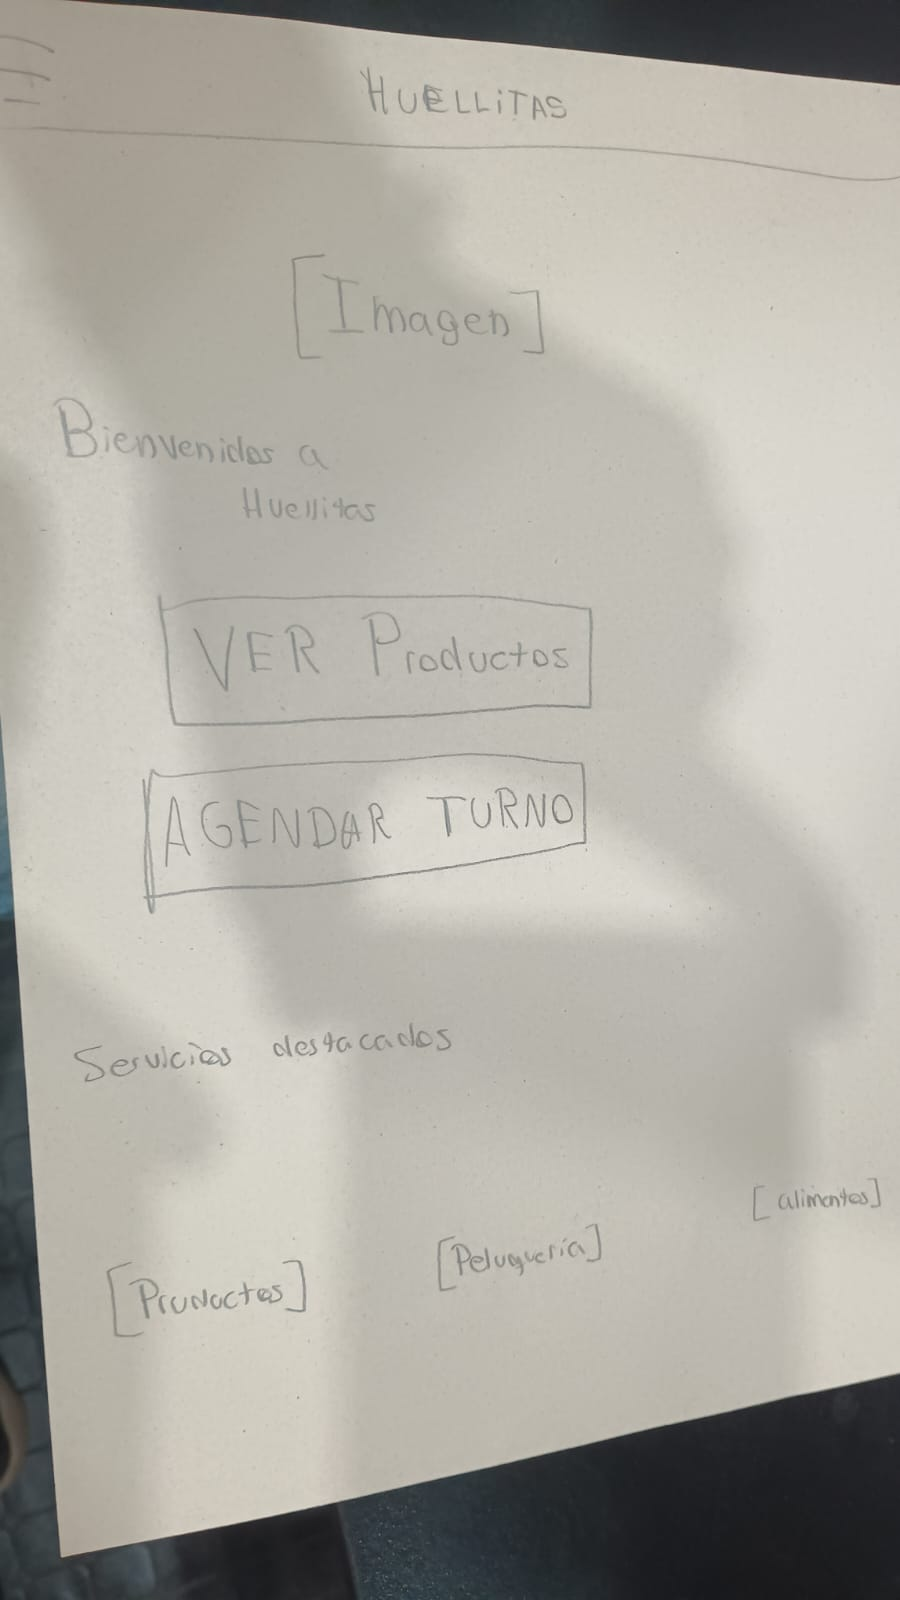 HUELLITAS
[Imagen]
Bienvenidos a
Huellitas
VER Productos
AGENDAR TURNO
Servicios destacados
[alimentos]
[Peluquería]
[Productos]